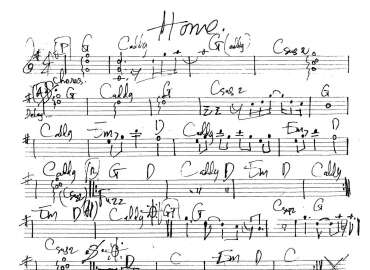 Home.
P G Cadd9 G(add9) Csus2
Chorus.
A G Cadd9 G Csus2 G
Delay..
Cadd9 Em D Cadd9 Em D
Cadd9 B G D Cadd9 D Em D Cadd9
(Csus2)
Em D Cadd9 G Csus2 G
Csus2 D C Em D C